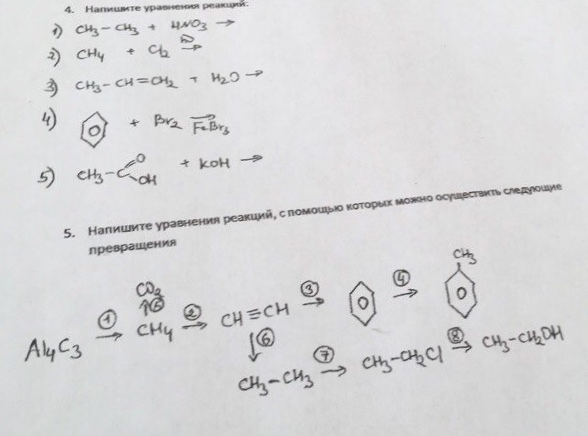 4. Напишите уравнения реакций:
1) CH3-CH3 + HNO3 →
2) CH4 + Cl2 hν→
3) CH3-CH=CH2 + H2O →
4) + Br2 → FeBr3
5) CH3-C O OH + KOH →
5. Напишите уравнения реакций, с помощью которых можно осуществить следующие
превращения
CO2 CH3
↑⑤
Al4C3 ①→ CH4 ②→ CH≡CH ③→ ④→
↓⑥
CH3-CH3 ⑦→ CH3-CH2Cl ⑧→ CH3-CH2OH